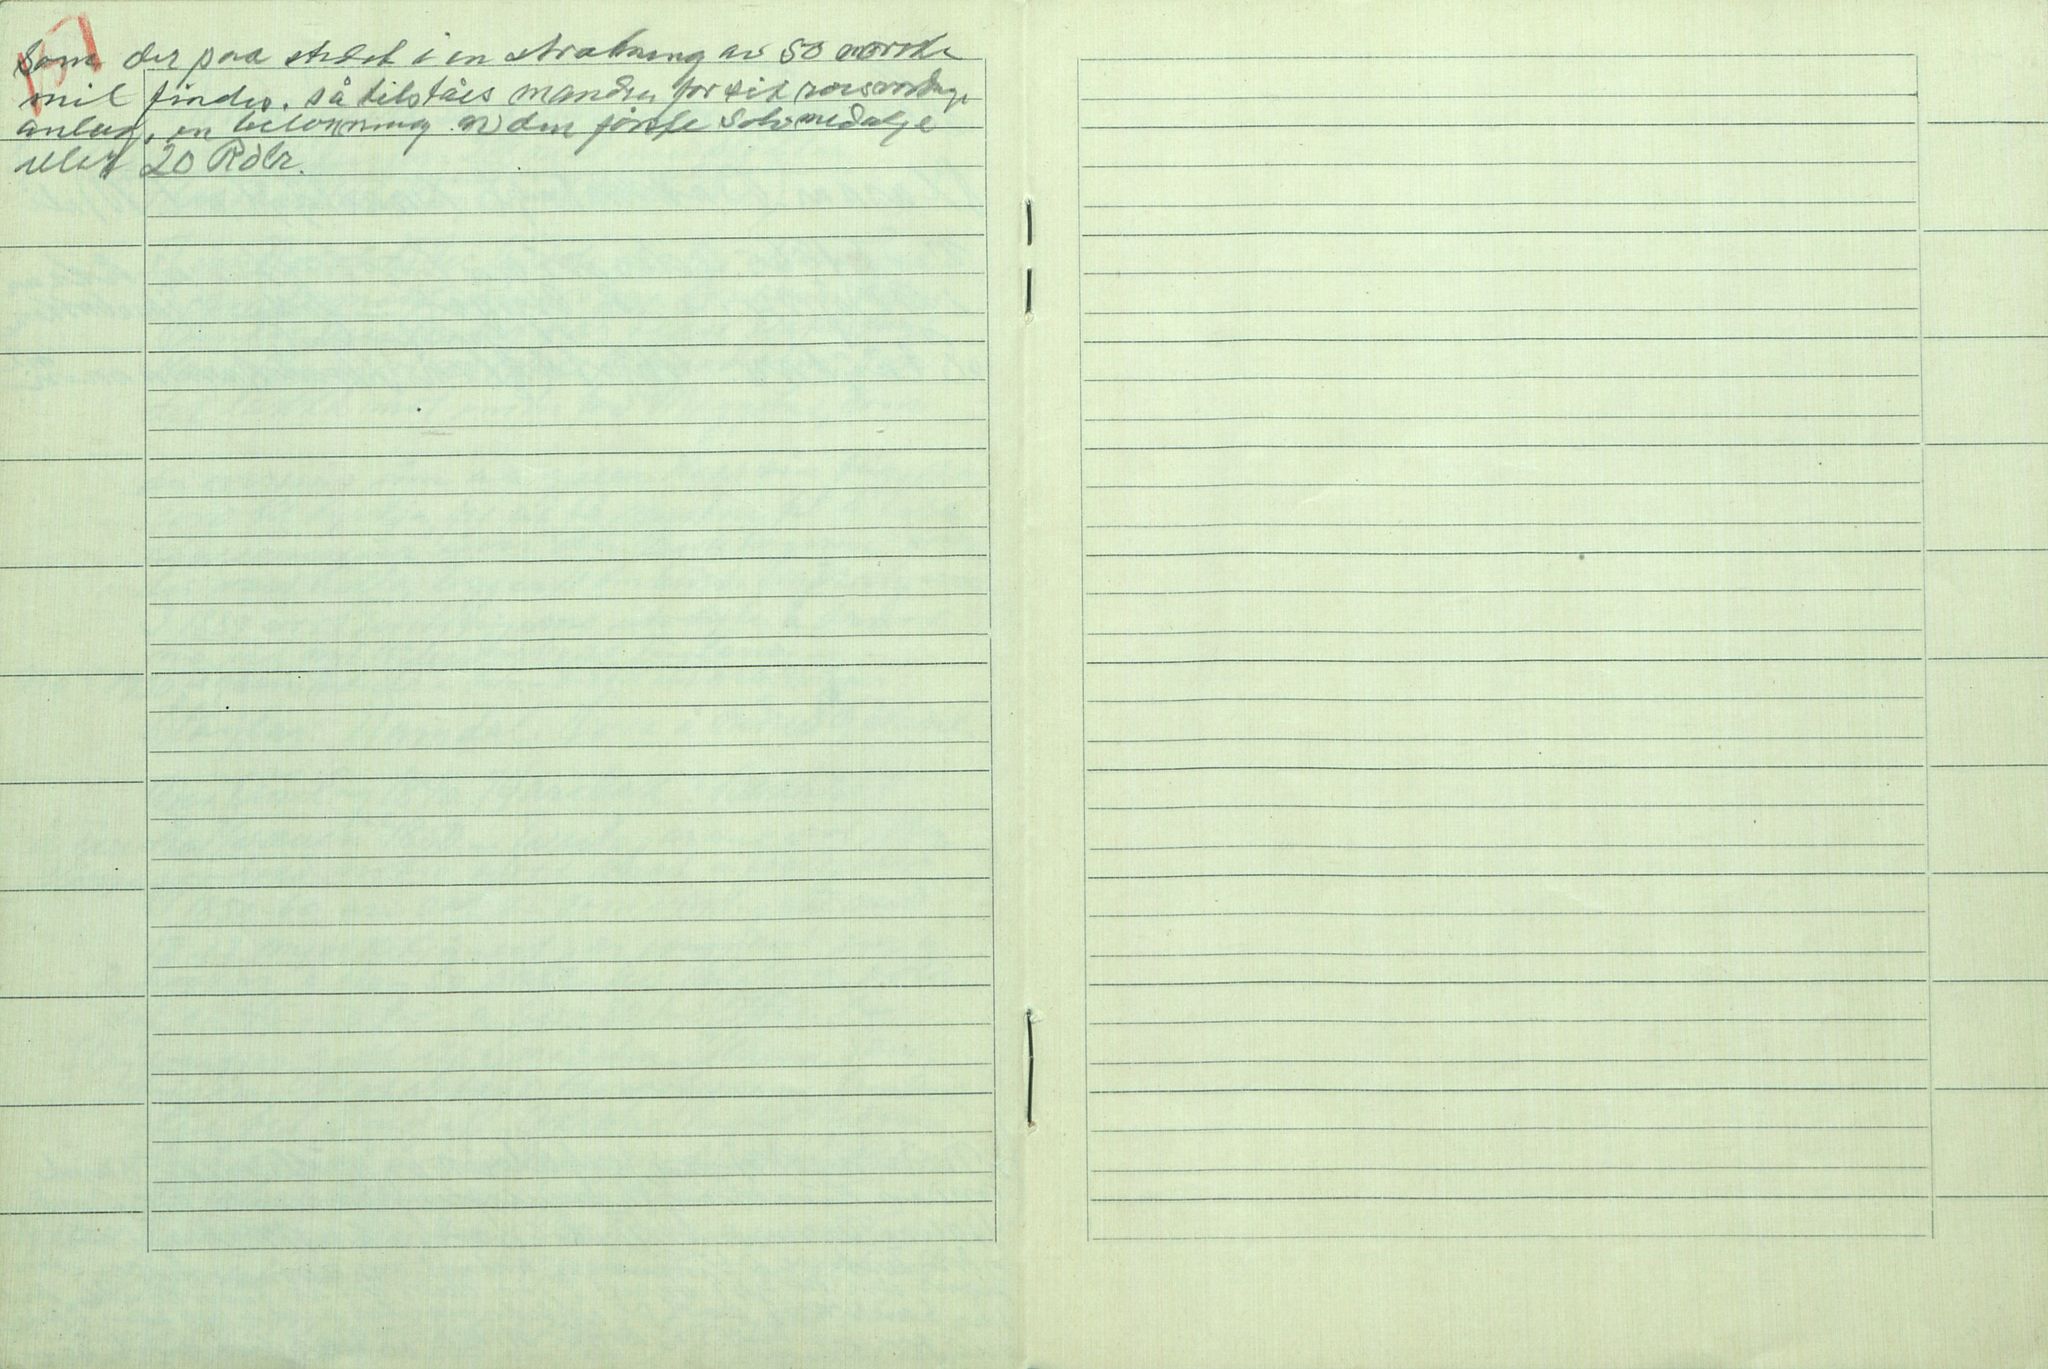 Som der paa stedet i en strækning av 50 norske
mil findes. så tilståes manden for sit roesverdige
anlæg, en belønning av den første Sølvmedalje
eller 20 Rdlr.